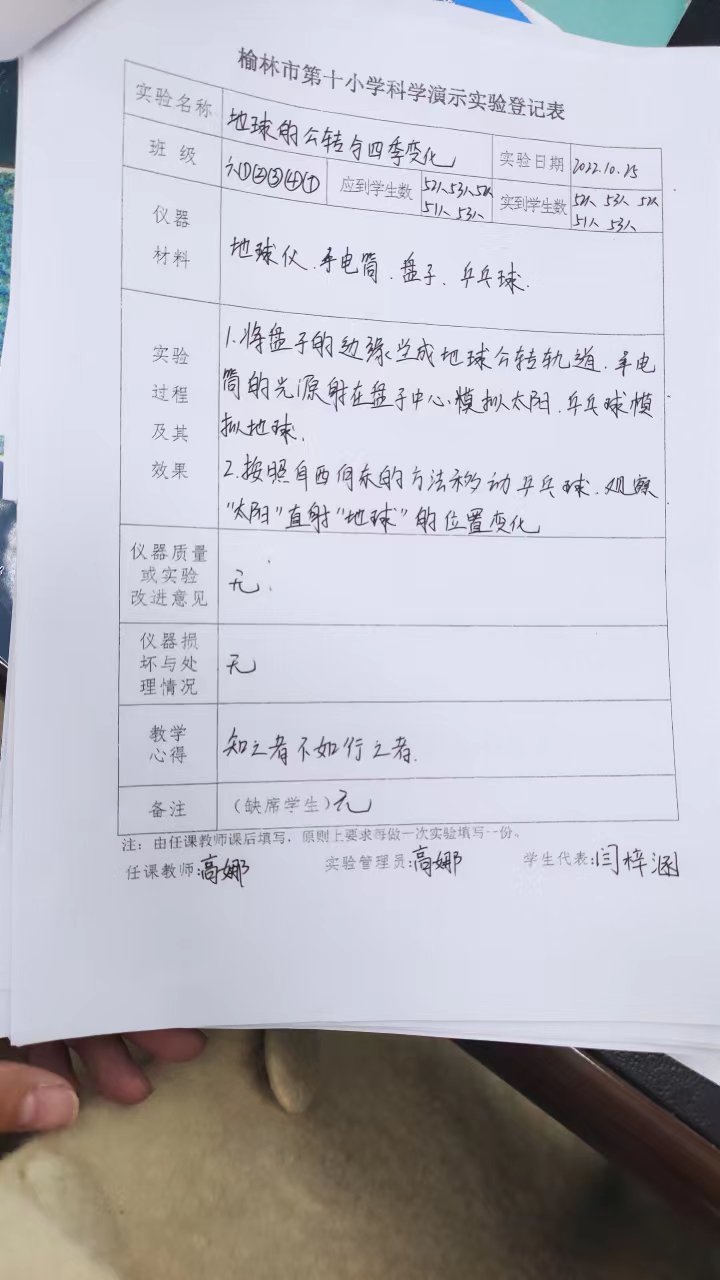 榆林市第十小学科学演示实验登记表
实验名称 地球的公转与四季变化 实验日期 2022.10.25
班 级 六①②③④① 应到学生数 52人 53人 52人 51人 53人 实到学生数 52人 53人 52人 51人 53人
仪器
材料
地球仪、手电筒、盘子、乒乓球.
实验
过程
及其
效果
1.将盘子的边缘当成地球公转轨道.手电
筒的光源射在盘子中心模拟太阳.乒乓球模
拟地球.
2.按照自西向东的方法移动乒乓球.观察
“太阳”直射“地球”的位置变化
仪器质量
或实验
改进意见
无.
仪器损
坏与处
理情况
无
教学
心得
知之者不如行之者.
备注 (缺席学生) 无
注：由任课教师课后填写，原则上要求每做一次实验填写一份。
任课教师:高娜 实验管理员:高娜 学生代表:闫梓涵